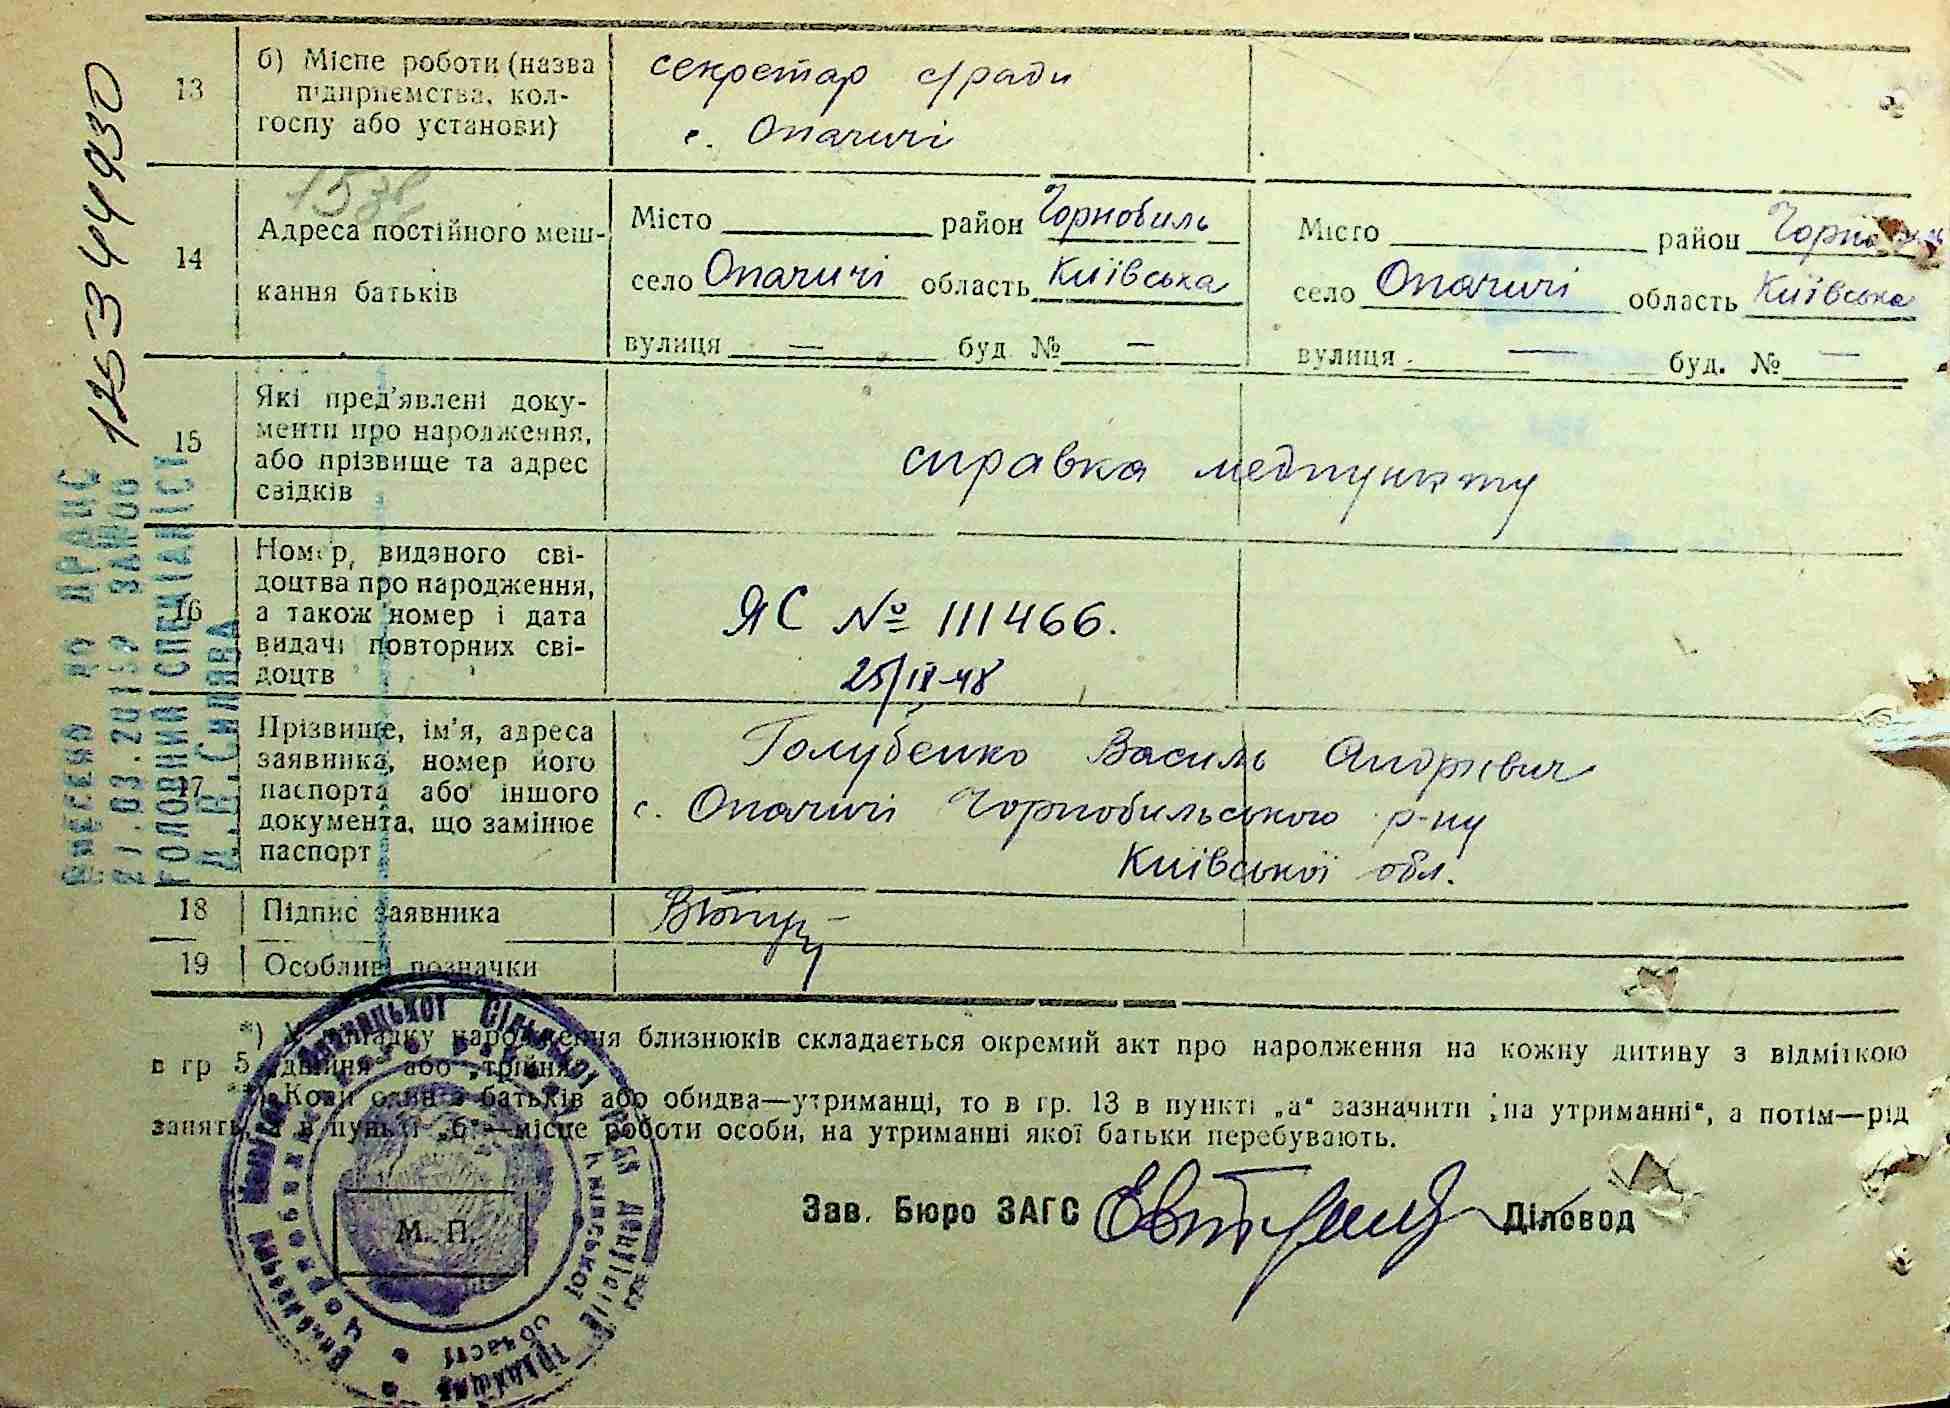 13
б) Місце роботи (назва
підприємства, кол-
госпу або установи)
секретар с/ради
с. Опачичі
14
Адреса постійного меш-
кання батьків
Місто район Чорнобиль
село Опачичі область Київська
вулиця — буд. № —
Місто район
село Опачичі область Київська
вулиця — буд. № —
15
Які пред'явлені доку-
менти про народження,
або прізвище та адрес
свідків
справка медпункту
16
Номер, виданого сві-
доцтва про народження,
а також номер і дата
видачі повторних сві-
доцтв
ЯС № 111466.
17
Прізвище, ім'я, адреса
заявника, номер його
паспорта або іншого
документа, що замінює
паспорт
Голубенко Василь Андрієвич
с. Опачичі Чорнобильського р-ну
Київської обл.
18
Підпис заявника
19
Особливі позначки
*) У випадку народження близнюків складається окремий акт про народження на кожну дитину з відміткою
в гр 5 „двійня" або „трійня"
**) Коли один з батьків або обидва—утриманці, то в гр. 13 в пункті „а" зазначити „на утриманні", а потім—рід
занять, а в пункті „б"—місце роботи особи, на утриманні якої батьки перебувають.
Зав. Бюро ЗАГС
Діловод
М. П.
Внесено до ДРАЦС
ГОЛОВНИЙ СПЕЦІАЛІСТ
Київської області